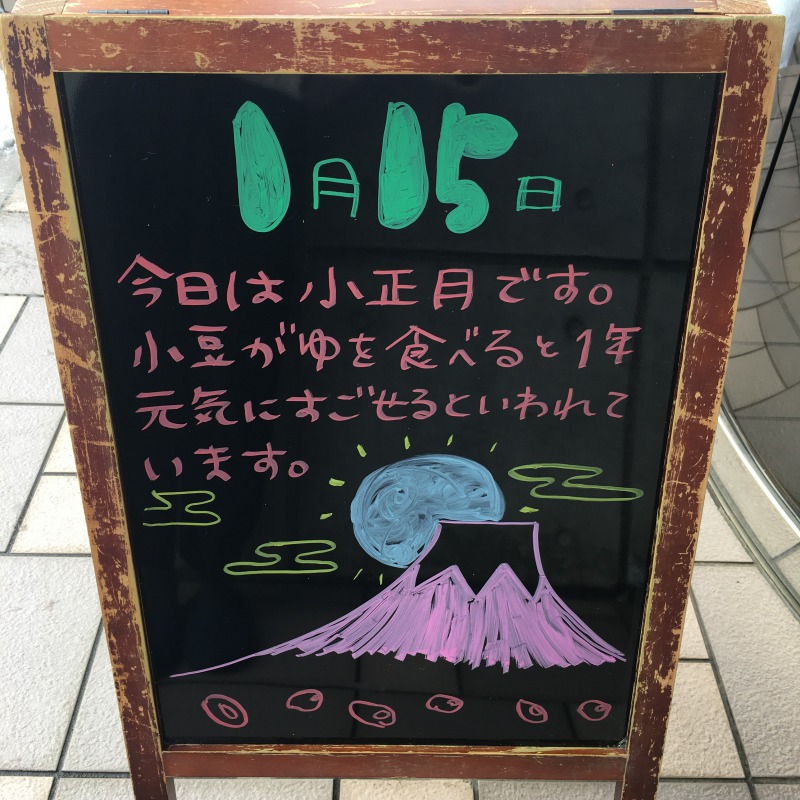 1月15日
今日は小正月です。
小豆がゆを食べると1年
元気にすごせるといわれて
います。